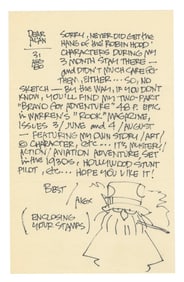 DEAR
ALAN
31
AUG
'80
SORRY, NEVER DID GET THE
HANG OF THE ROBIN HOOD
CHARACTERS DURING MY
3 MONTH STAY THERE —
AND DIDN'T MUCH CARE FOR
THEM, EITHER... SO, NO
SKETCH — BY THE WAY, IF YOU DON'T
KNOW, YOU'LL FIND MY TWO-PART
"BRAVO FOR ADVENTURE" 48 P. EPIC
IN WARREN'S "ROOK" MAGAZINE,
ISSUES 3/JUNE AND 4/AUGUST
— FEATURING MY OWN STORY/ART/
CHARACTER, ETC... IT'S MYSTERY/
ACTION/AVIATION ADVENTURE, SET
IN THE 1930s: HOLLYWOOD STUNT
PILOT, ETC... HOPE YOU LIKE IT!
BEST/
ALEX
(ENCLOSING
YOUR STAMPS)